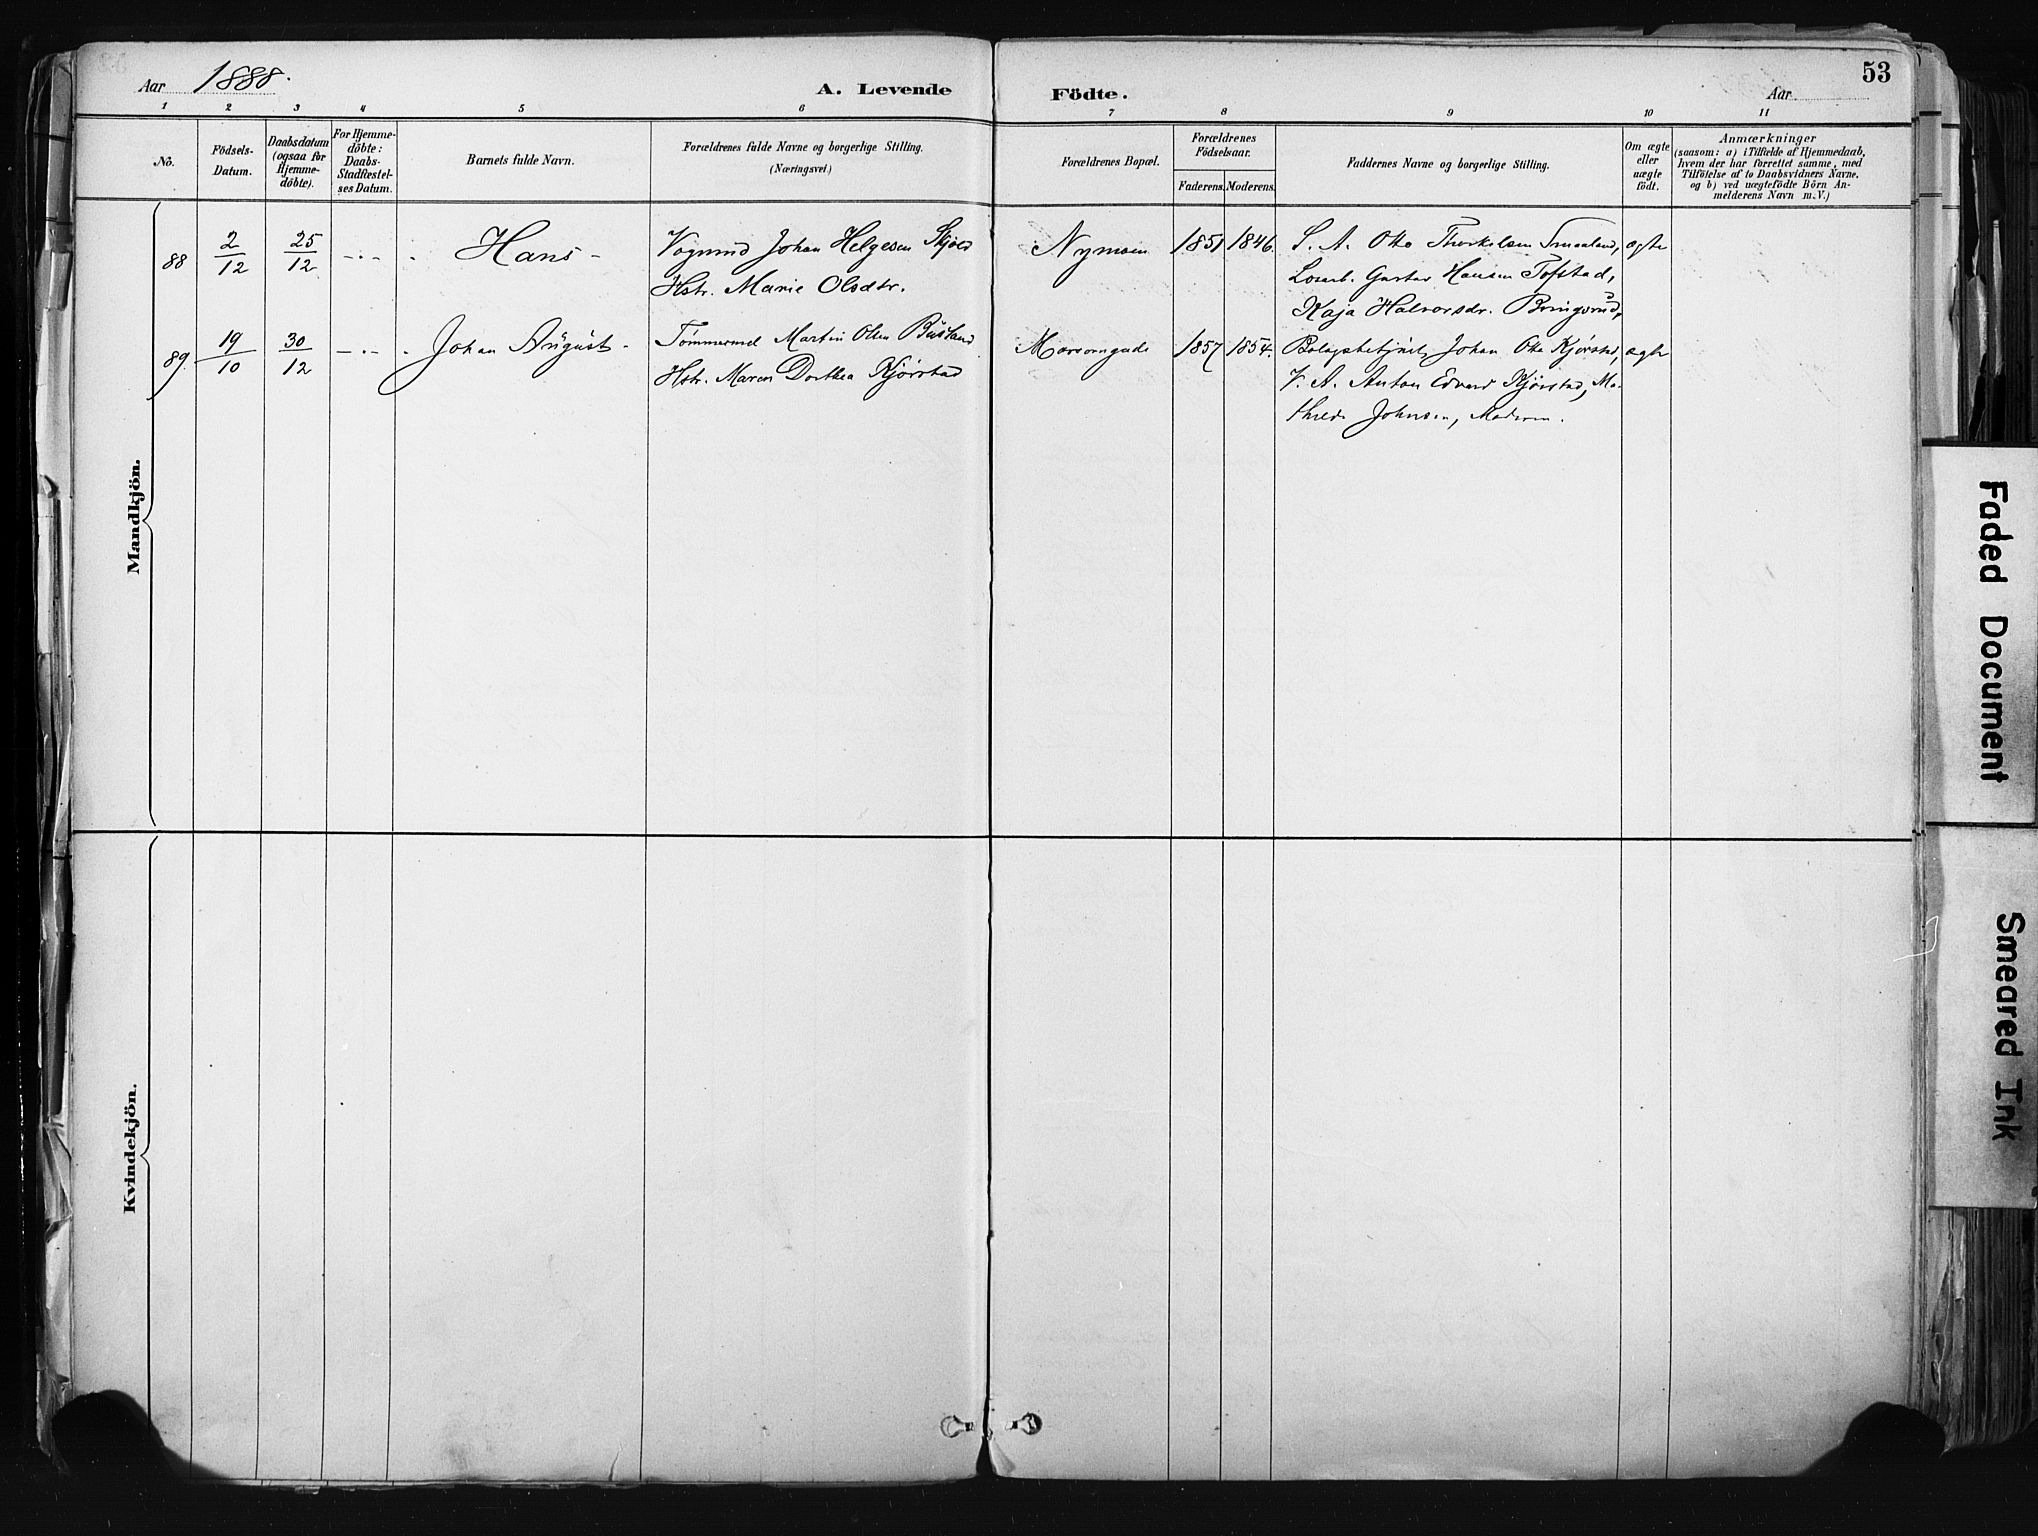 Aar 1888.
A. Levende Födte.
Aar
53
1 2 3 4 5 6 7 8 9 10 11
No.
Födsels-
Datum.
Daabsdatum
(ogsaa for
Hjemme-
döbte).
For Hjemme-
döbte:
Daabs-
Stadfæstel-
ses Datum.
Barnets fulde Navn.
Forældrenes fulde Navne og borgerlige Stilling.
(Næringsvei.)
Forældrenes Bopæl.
Forældrenes
Födselsaar.
Faderens. Moderens.
Faddernes Navne og borgerlige Stilling.
Om ægte
eller
uægte
födt.
Anmærkninger
(saasom: a) i Tilfælde af Hjemmedaab,
hvem der har forrettet samme, med
Tilföielse af to Daabsvidners Navne.
og b) ved uægtefödte Börn An-
melderens Navn m.V.)
Mandkjön.
88
2/12
25/12
Hans
Vognmd Johan Helgesen
Hstr. Marie Olsdtr.
Nymoen
1851
1846.
S. A. Otto Thorkelsen Smaaland,
Losarb. Gustav Hansen Tofstad,
Kaja Halvorsdr. Bringsrud,
ægte
89
19/10
30/12
Johan August
Tømmermd Martin Olsen
Hstr. Maren Dorthea Kjørstad
1857
1854.
Johan Otto Kjørstad,
F. A. Anton Edvard Kjørstad, Ma-
thilde Johnsen, Moderen.
ægte
Kvindekjön.
Faded Document
Smeared Ink